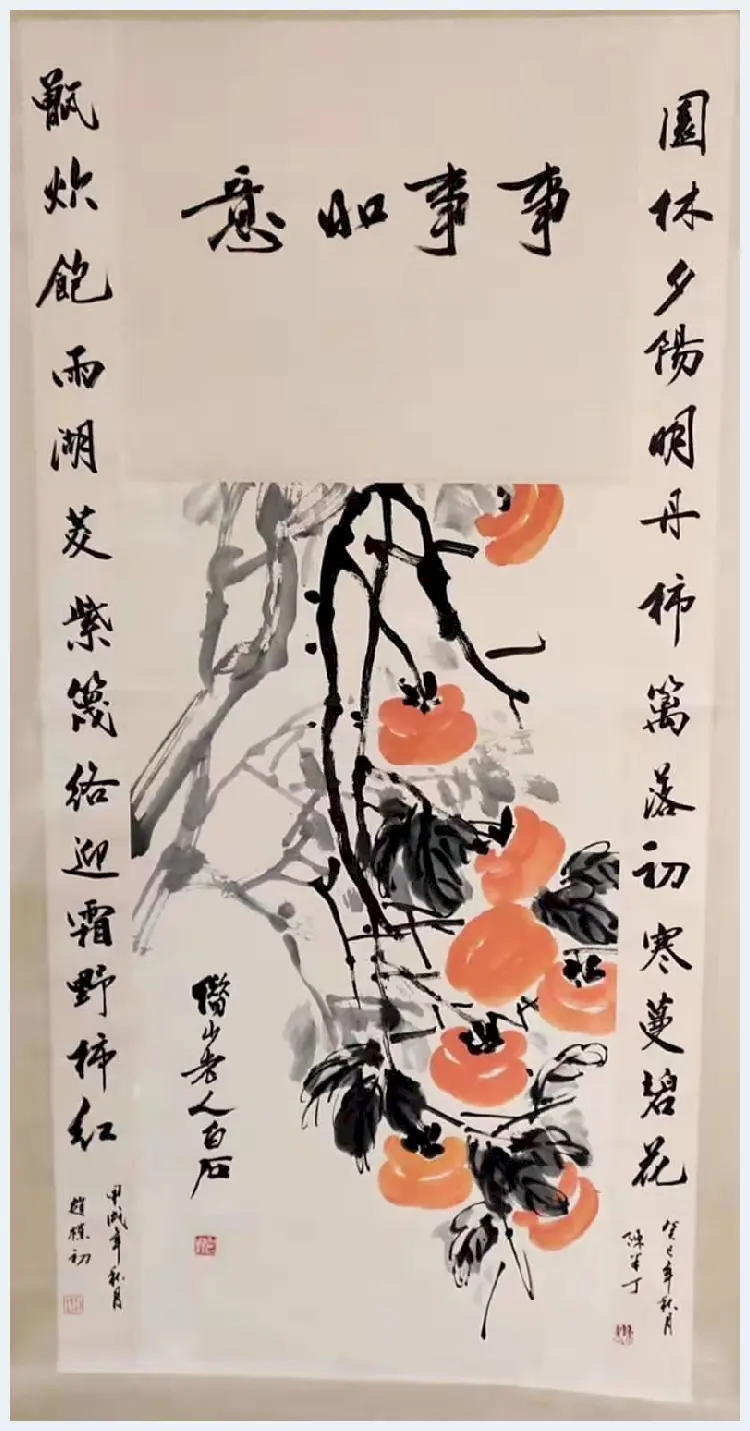 事事如意
園林夕陽明丹柿籬落初寒蔓碧花
癸巳年秋月
陳半丁
甑炊飽雨湖菱紫篾络迎霜野柿红
甲戌年秋月
趙樸初
借山老人白石